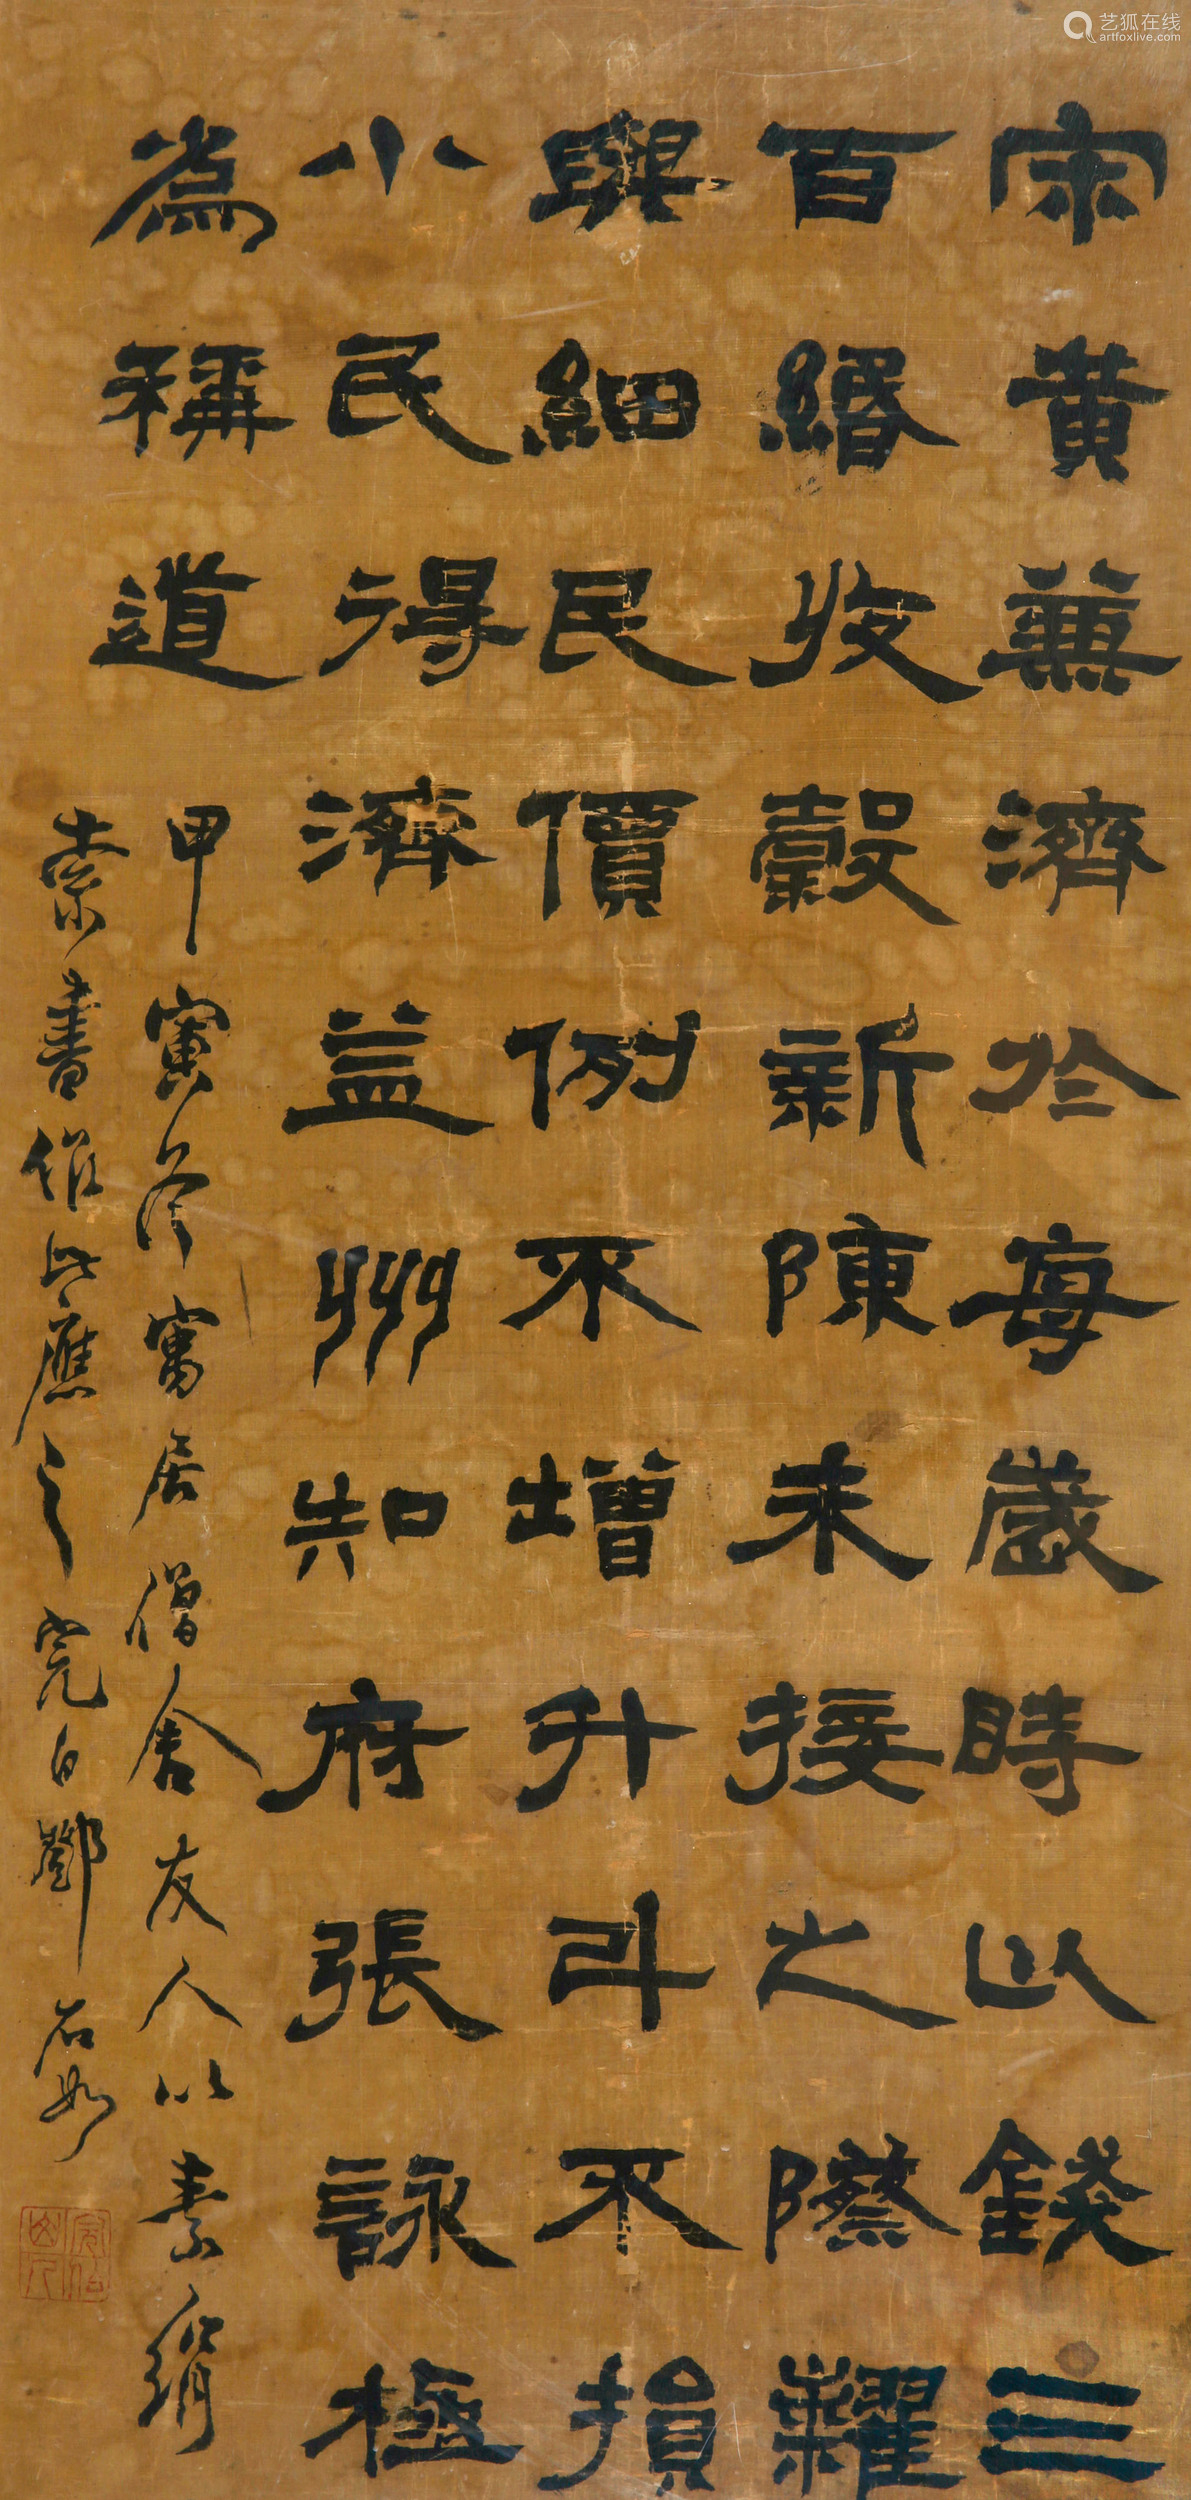 宋黄蒹濟於每歲時以錢三
百緡收穀新陳未接之際糶
與細民價例不增升斗不損
小民得濟益州知府張詠極
為稱道
甲寅冬寓居僧舍友人以素絹
索書作此應之完白鄧石如
艺狐在线
artfoxlive.com